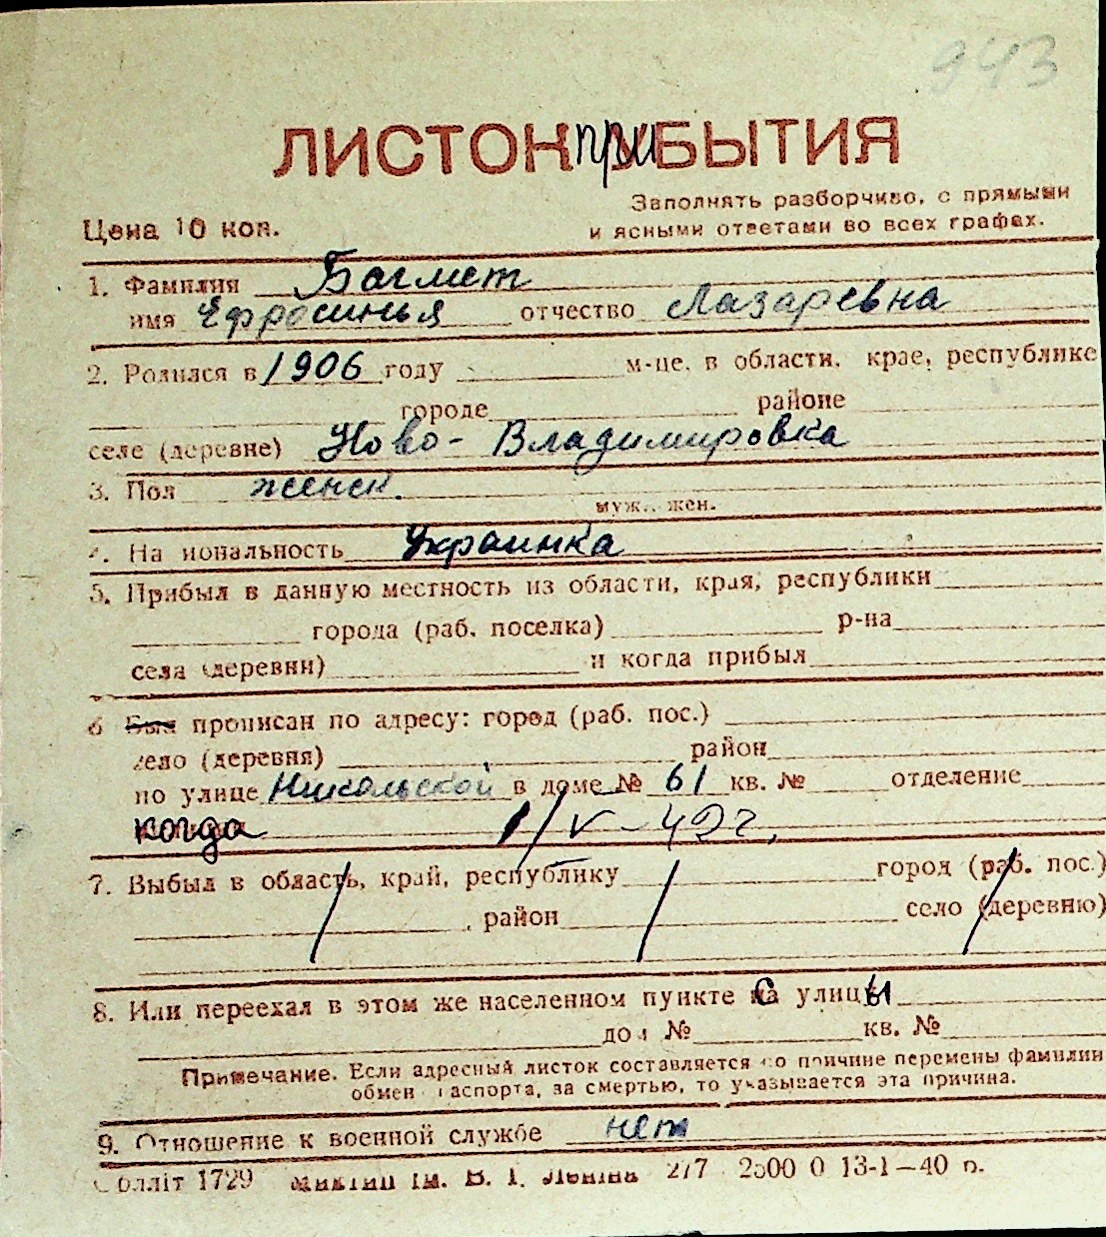 943
ЛИСТОК приБЫТИЯ
Заполнять разборчиво, с прямыми
Цена 10 коп.
и ясными ответами во всех графах.
1. Фамилия Багмет
имя Ефросинья отчество Лазаревна
2. Родился в 1906 году м-це, в области, крае, республике
городе районе
селе (деревне) Ново-Владимировка
3. Пол женск.
муж., жен.
4. Национальность Украинка
5. Прибыл в данную местность из области, края, республики
города (раб. поселка) р-на
села (деревни) и когда прибыл
6 Был прописан по адресу: город (раб. пос.)
село (деревня) район
по улице Никольской в доме № 61 кв. № отделение
когда 1/V-42г.
7. Выбыл в область, край, республику город (раб. пос.)
район село (деревню)
8. Или переехал в этом же населенном пункте с улицы
дом № кв. №
Примечание. Если адресный листок составляется по причине перемены фамилии
обмен паспорта, за смертью, то указывается эта причина.
9. Отношение к военной службе нет
Облліт 1729 ім. В. І. Леніна 277 2500 0 13-1—40 р.